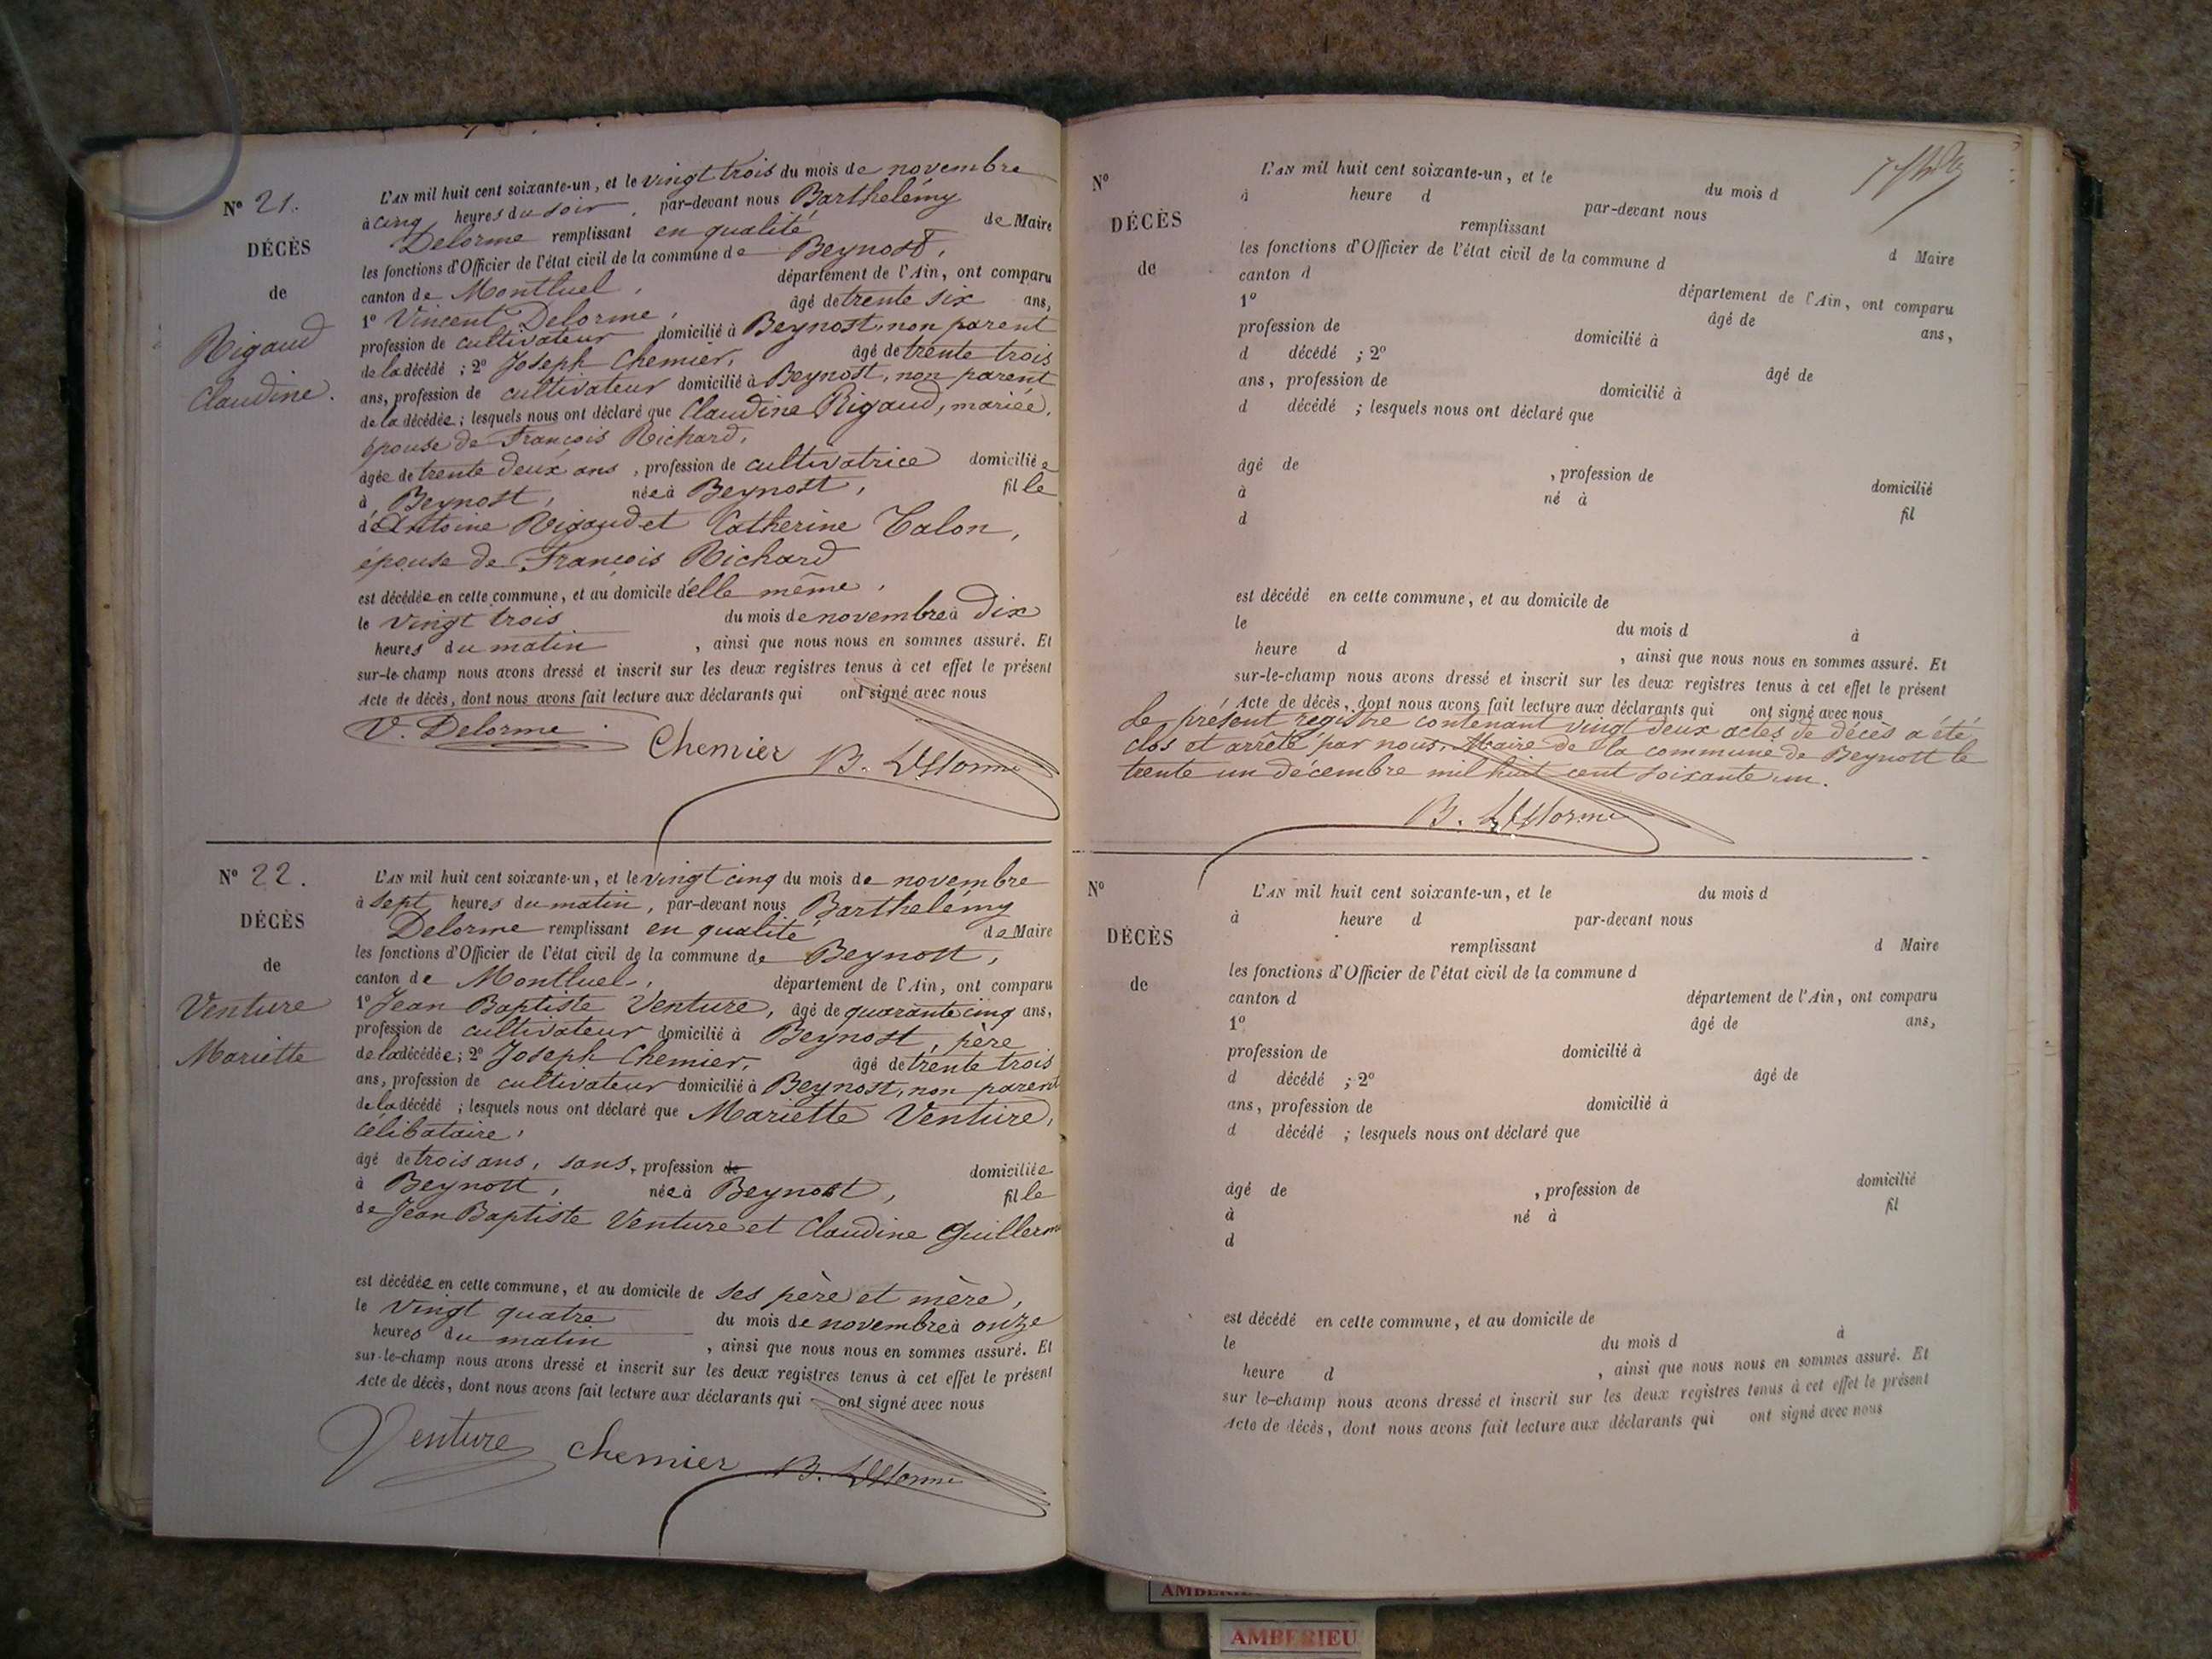 N° 21.
DÉCÈS
de
Rigaud
Claudine.
L'AN mil huit cent soixante-un, et le vingt trois du mois de novembre
à cinq heures du soir, par-devant nous Barthelémy
Delorme remplissant en qualité de Maire
les fonctions d'Officier de l'état civil de la commune de Beynost,
canton de Montluel, département de l'Ain, ont comparu
1° Vincent Delorme, âgé de trente six ans,
profession de cultivateur domicilié à Beynost, non parent
de la décédé ; 2° Joseph Chemier, âgé de trente trois
ans, profession de cultivateur domicilié à Beynost, non parent
de la décédée ; lesquels nous ont déclaré que Claudine Rigaud, mariée,
épouse de François Richard,
âgée de trente deux ans, profession de cultivatrice domiciliée
à Beynost, née à Beynost, fille
d'Antoine Rigaud et Catherine Talon,
épouse de François Richard
est décédée en cette commune, et au domicile d'elle même,
le vingt trois du mois de novembre à dix
heures du matin, ainsi que nous nous en sommes assuré. Et
sur-le-champ nous avons dressé et inscrit sur les deux registres tenus à cet effet le présent
Acte de décès, dont nous avons fait lecture aux déclarants qui ont signé avec nous
V. Delorme Chemier B. Delorme
N° 22.
DÉCÈS
de
Venture
Mariette
L'AN mil huit cent soixante-un, et le vingt cinq du mois de novembre
à sept heures du matin, par-devant nous Barthelémy
Delorme remplissant en qualité de Maire
les fonctions d'Officier de l'état civil de la commune de Beynost,
canton de Montluel, département de l'Ain, ont comparu
1° Jean Baptiste Venture, âgé de quarante cinq ans,
profession de cultivateur domicilié à Beynost, père
de la décédée ; 2° Joseph Chemier, âgé de trente trois
ans, profession de cultivateur domicilié à Beynost, non parent
de la décédé ; lesquels nous ont déclaré que Mariette Venture,
célibataire,
âgé de trois ans, sans, profession de domiciliée
à Beynost, née à Beynost, fille
de Jean Baptiste Venture et Claudine Guillerm
est décédée en cette commune, et au domicile de ses père et mère,
le vingt quatre du mois de novembre à onze
heures du matin, ainsi que nous nous en sommes assuré. Et
sur-le-champ nous avons dressé et inscrit sur les deux registres tenus à cet effet le présent
Acte de décès, dont nous avons fait lecture aux déclarants qui ont signé avec nous
Venture Chemier B. Delorme
N°
DÉCÈS
de
L'AN mil huit cent soixante-un, et le du mois d
à heure d par-devant nous
remplissant d Maire
les fonctions d'Officier de l'état civil de la commune d
canton d département de l'Ain, ont comparu
1° âgé de ans,
profession de domicilié à
d décédé ; 2° âgé de
ans, profession de domicilié à
d décédé ; lesquels nous ont déclaré que
âgé de , profession de domicilié
à né à fil
d
est décédé en cette commune, et au domicile de
le du mois d à
heure d , ainsi que nous nous en sommes assuré. Et
sur-le-champ nous avons dressé et inscrit sur les deux registres tenus à cet effet le présent
Acte de décès, dont nous avons fait lecture aux déclarants qui ont signé avec nous
Le présent registre contenant vingt deux actes de décès a été
clos et arrêté par nous, Maire de la commune de Beynost le
trente un décembre mil huit cent soixante un.
B. Delorme
N°
DÉCÈS
de
L'AN mil huit cent soixante-un, et le du mois d
à heure d par-devant nous
remplissant d Maire
les fonctions d'Officier de l'état civil de la commune d
canton d département de l'Ain, ont comparu
1° âgé de ans,
profession de domicilié à
d décédé ; 2° âgé de
ans, profession de domicilié à
d décédé ; lesquels nous ont déclaré que
âgé de , profession de domicilié
à né à fil
d
est décédé en cette commune, et au domicile de
le du mois d à
heure d , ainsi que nous nous en sommes assuré. Et
sur le-champ nous avons dressé et inscrit sur les deux registres tenus à cet effet le présent
Acte de décès, dont nous avons fait lecture aux déclarants qui ont signé avec nous
AMBERIEU